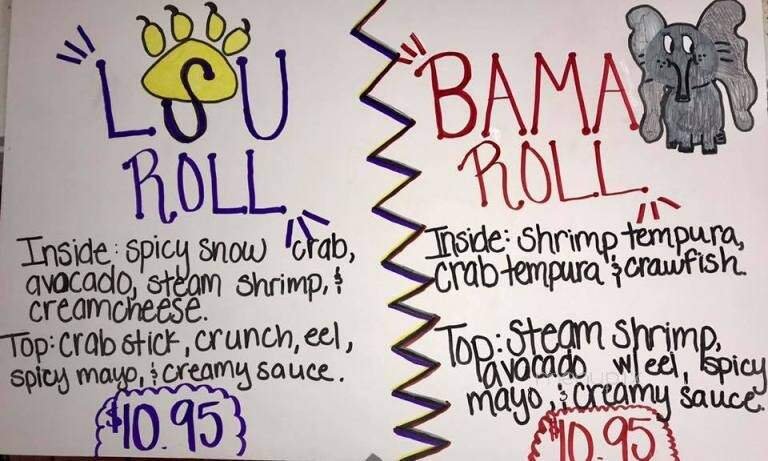 LSU
ROLL
Inside: spicy snow crab,
avocado, steam shrimp, &
creamcheese.
Top: crab stick, crunch, eel,
spicy mayo, & creamy sauce.
$10.95
BAMA
ROLL
Inside: shrimp tempura,
crab tempura & crawfish.
Top: Steam shrimp,
avocado w/ eel, spicy
mayo, & creamy sauce.
$10.95